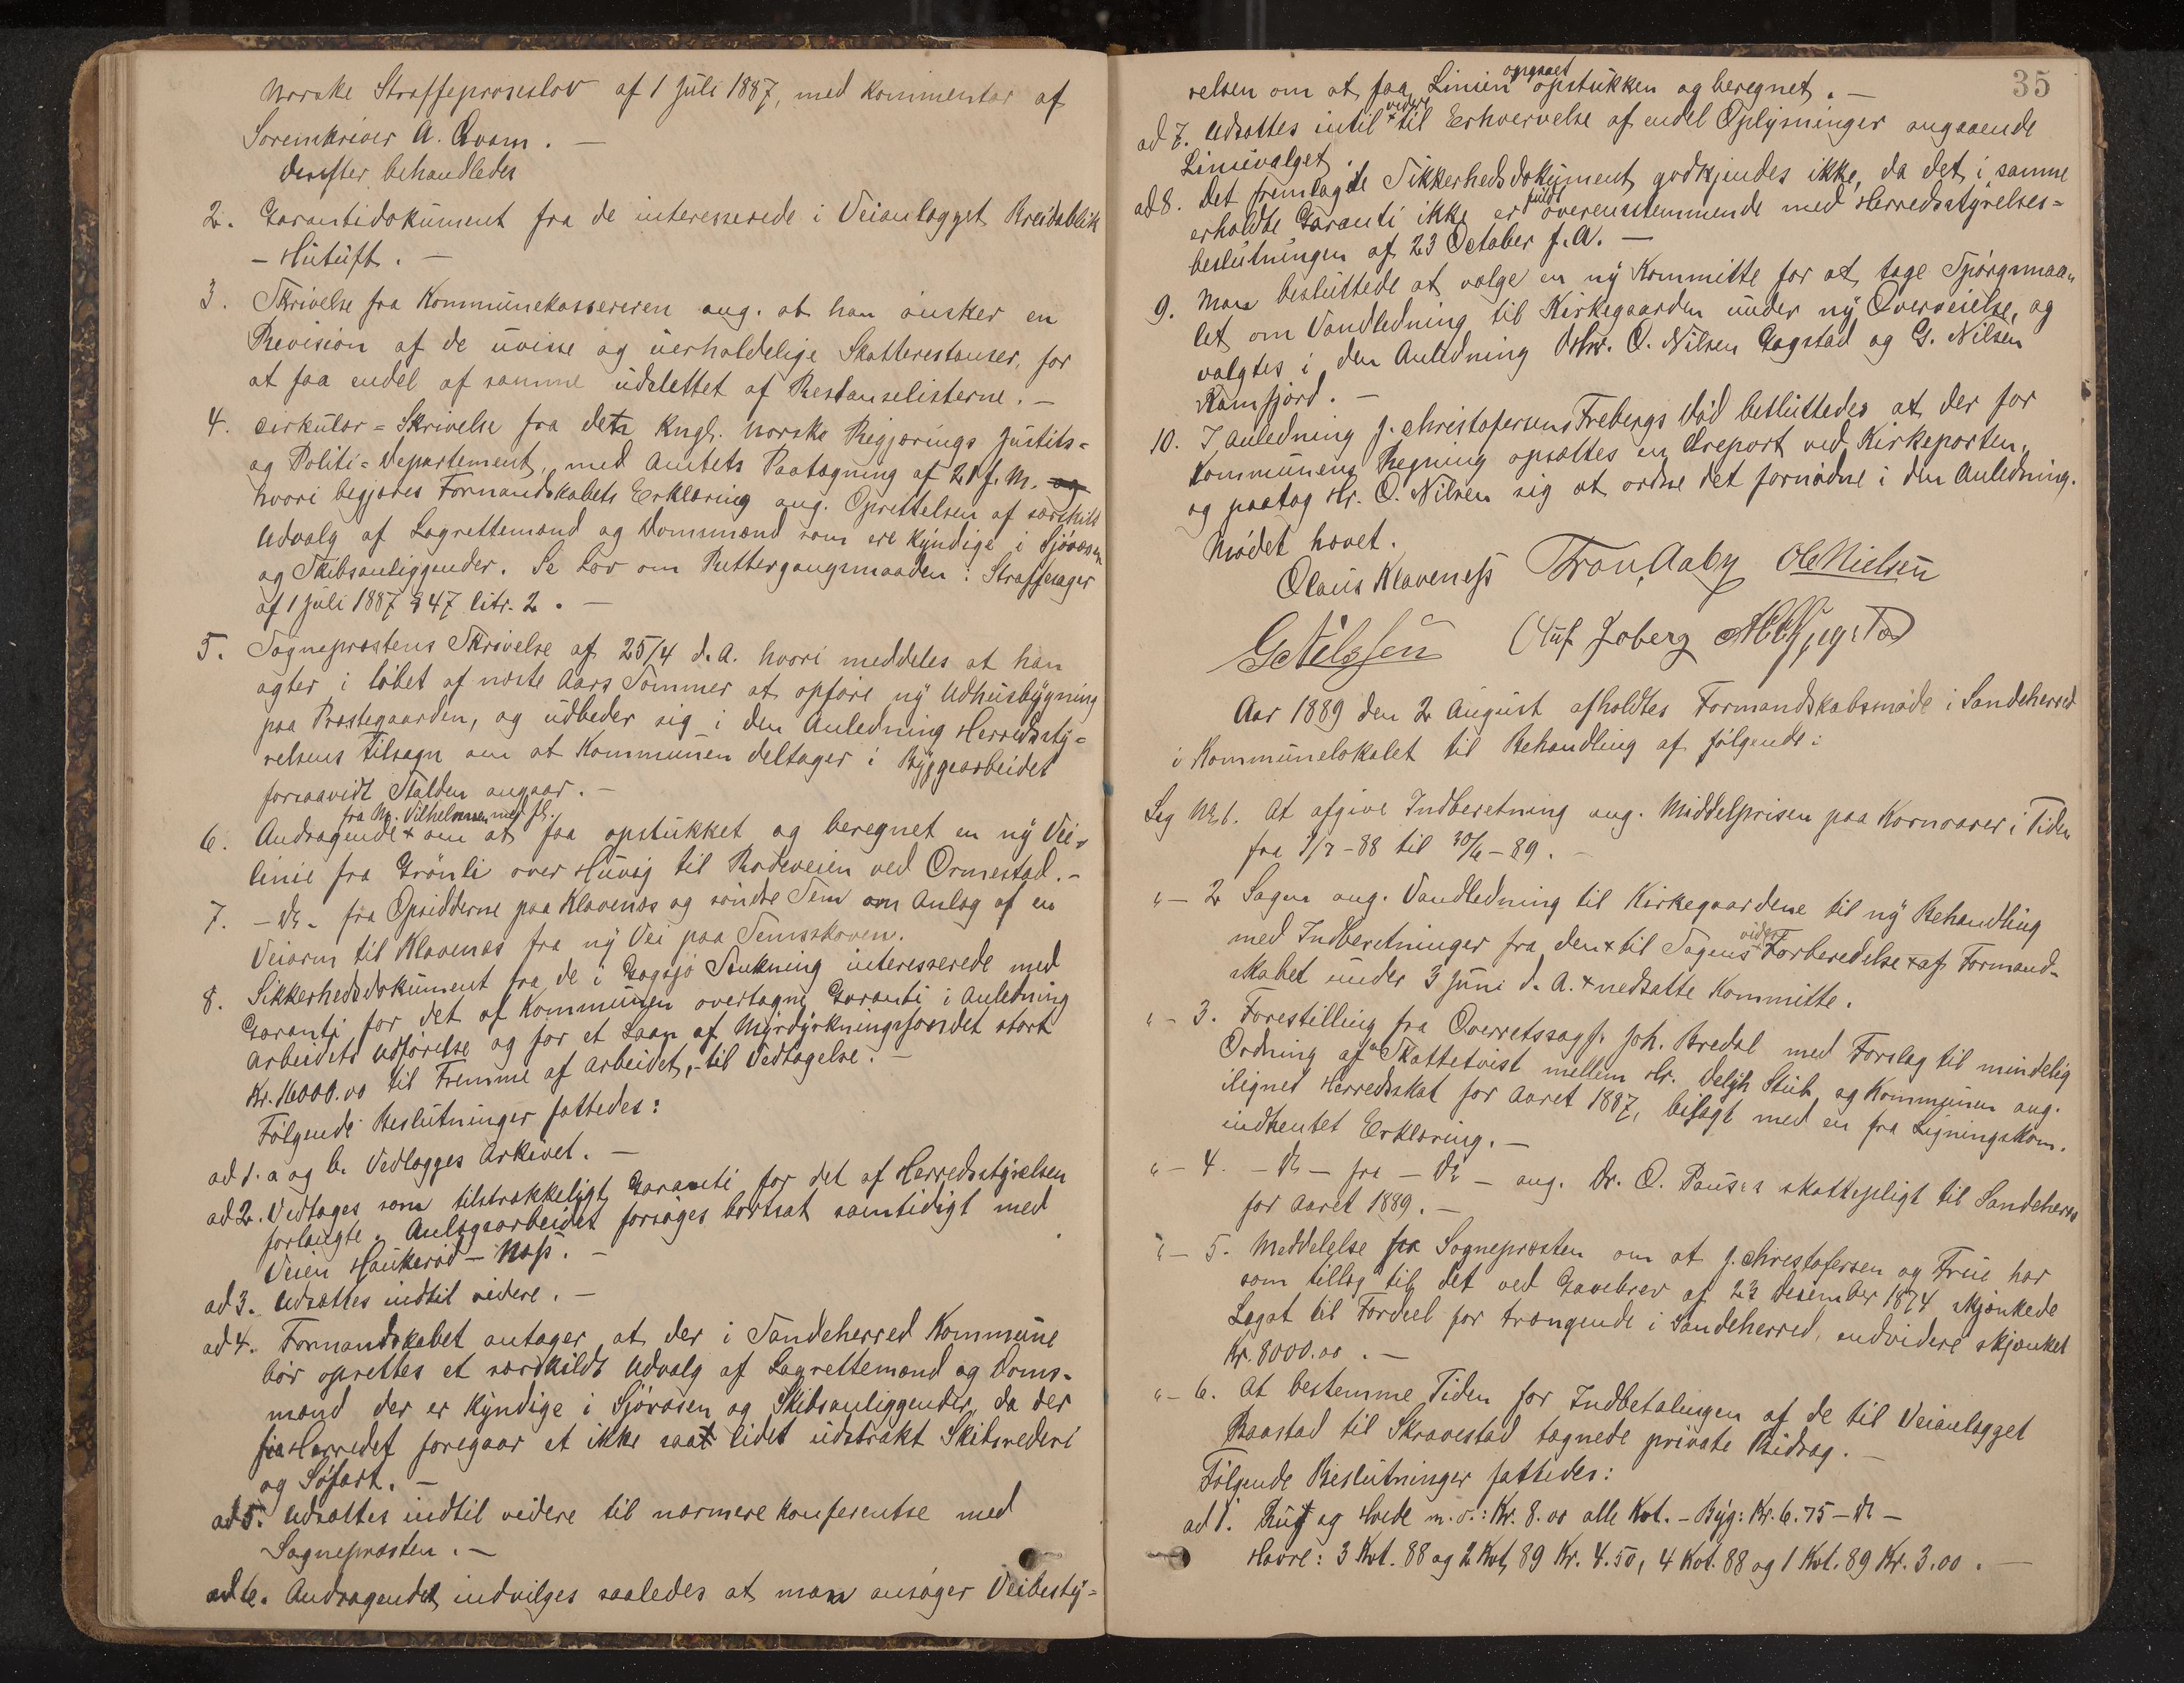 norske Straffeproseslov af 1 Juli 1887, med Kommentar af
Sorenskriver A. Qvam. —
Derefter behandledes
2. Garantidokument fra de interesserede i Veianlægget Breidablik
- Hutuft. —
3. Skrivelse fra Kommunekassereren ang. at han ønsker en
Revision af de uvisse og uerholdelige Skatterestanser, for
at faa endel af samme udslettet af Restanselisterne. —
4. Cirkulær-Skrivelse fra det Kngl. norske Regjerings Justits-
og Politi-Departement, med Amtets Paategning af 21 f. M. og
hvori begjæres Formandskabets Erklæring ang. Oprettelsen af særskilt
Udvalg af Lagrettemænd og Dommænd som ere kyndige i Sjøvæsen
og Skibsanliggender. Se Lov om Rettergangsmaaden i Straffesager
af 1 Juli 1887 § 47 litr. 2. —
5. Sogneprestens Skrivelse af 25/4 d. A. hvori meddeles at han
agter i løbet af næste Aars Sommer at opføre ny Udhusbygning
paa Prestegaarden, og udbeder sig i den Anledning Herredssty-
relsens Tilsagn om at Kommunen deltager i Byggearbeidet
forsaavidt Stalden angaar. —
fra M. Vilhelmsen med fl.
6. Andragende × om at faa opstukket og beregnet en ny Vei-
linie fra Grønli over Huvig til Rodeveien ved Ormestad. —
7. - do - fra Opsidderne paa Klavenæs og søndre Sem om Anlæg af en
Veiarm til Klavenæs fra ny Vei paa Semsskoven.
8. Sikkerhedsdokument fra de i Gogsjø Sænkning interesserede med
Garanti for det af Kommunen overtagne Garanti i Anledning
Arbeidets Udførelse og for et Laan af Myrdyrkningsfondet stort
Kr. 16000.00 til Fremme af Arbeidet, - til Vedtagelse. —
Følgende Beslutninger fattedes:
ad 1. a og b. Vedlægges Arkivet. —
ad 2. Vedtages som tilstrækkeligt Garanti for det af Herredsstyrelsen
forlangte. Anlægsarbeidet forsøges bortsat samtidigt med
Veien Haukerød - Næss. —
ad 3. Udsættes indtil videre. —
ad 4. Formandskabet antager at der i Sandeherred Kommune
bør oprettes et særskildt Udvalg af Lagrettemænd og Doms-
mænd der er kyndige i Sjøvæsen og Skibsanliggender, da der
fra Herredet foregaar et ikke saa lidet udstrakt Skibsrederi
og Søfart. —
ad 5. Udsættes indtil videre til nærmere Konferentse med
Sognepresten. —
ad 6. Andragendet indvilges saaledes at man ansøger Veibesty-
35
opgaaet
relsen om at faa Linien opstukken og beregnet. —
videre
ad 7. Udsættes intil × til Erhvervelse af endel Oplysninger angaaende
Linievalget.
ad 8. Det fremlagte Sikkerhedsdokument godkjendes ikke, da det i samme
fuldt
erholdte Garanti ikke er overensstemmende med Herredsstyrelses-
beslutningen af 23 October f. A. —
9. Man besluttede at vælge en ny Kommitte for at tage Spørgsmaa-
let om Vandledning til Kirkegaarden under ny Overveielse, og
valgtes i den Anledning Dhrr. O. Nilsen Gogstad og G. Nilsen
Kamfjord. —
10. I Anledning J. Christofersens Frebergs Død besluttedes at der for
Kommunens Regning opsættes en Æreport ved Kirkeporten,
og paatog Hr. O. Nilsen sig at ordne det fornødne i den Anledning.
Mødet hævet.
Olaus Klaveness Tron Aaby Ole Nielsen
G Nilssen Oluf Joberg
Aar 1889 den 2 August afholdtes Formandskabsmøde i Sandeherred
i Kommunelokalet til Behandling af følgende:
Sag No 1. At afgive Indberetning ang. Middelprisen paa Kornvarer i Tiden
fra 1/7-88 til 30/6-89. —
" - 2 Sagen ang. Vandledning til Kirkegaardene til ny Behandling
videre
med Indberetninger fra den × til Sagens × Forberedelse × af Formand-
skabet under 3 Juni d. A. × nedsatte Kommitte.
" - 3. Forestilling fra Overretssagf. Joh. Bredal med Forslag til mindelig
Ordning af Skattetvist mellem Hr. Delph. Stub og Kommunen ang.
ilignet Herredsskat for Aaret 1887, bilagt med en fra Ligningskom.
indhentet Erklæring. —
" - 4. - do - fra - do - ang. Dr. O. Pauss's skattepligt til Sandeherred
for Aaret 1889. —
" - 5. Meddelelse fra Sognepresten om at J. Christofersen og Frue har
som tillæg til det ved Gavebrev af 23 Desember 1874 skjænkede
Legat til Fordeel for trængende i Sandeherred, endvidere skjænket
Kr. 8000.00. —
" - 6. At bestemme Tiden for Indbetalingen af de til Veianlægget
Raastad til Skravestad tegnede private Bidrag. —
Følgende Beslutninger fattedes:
ad 1. Rug og Hvede m. v.: Kr. 8.00 alle Kvt. - Byg: Kr. 6.75 - do -
Havre: 3 Kvt. 88 og 2 Kvt. 89 Kr. 4.50, 4 Kvt. 88 og 1 Kvt. 89 Kr. 3.00. —